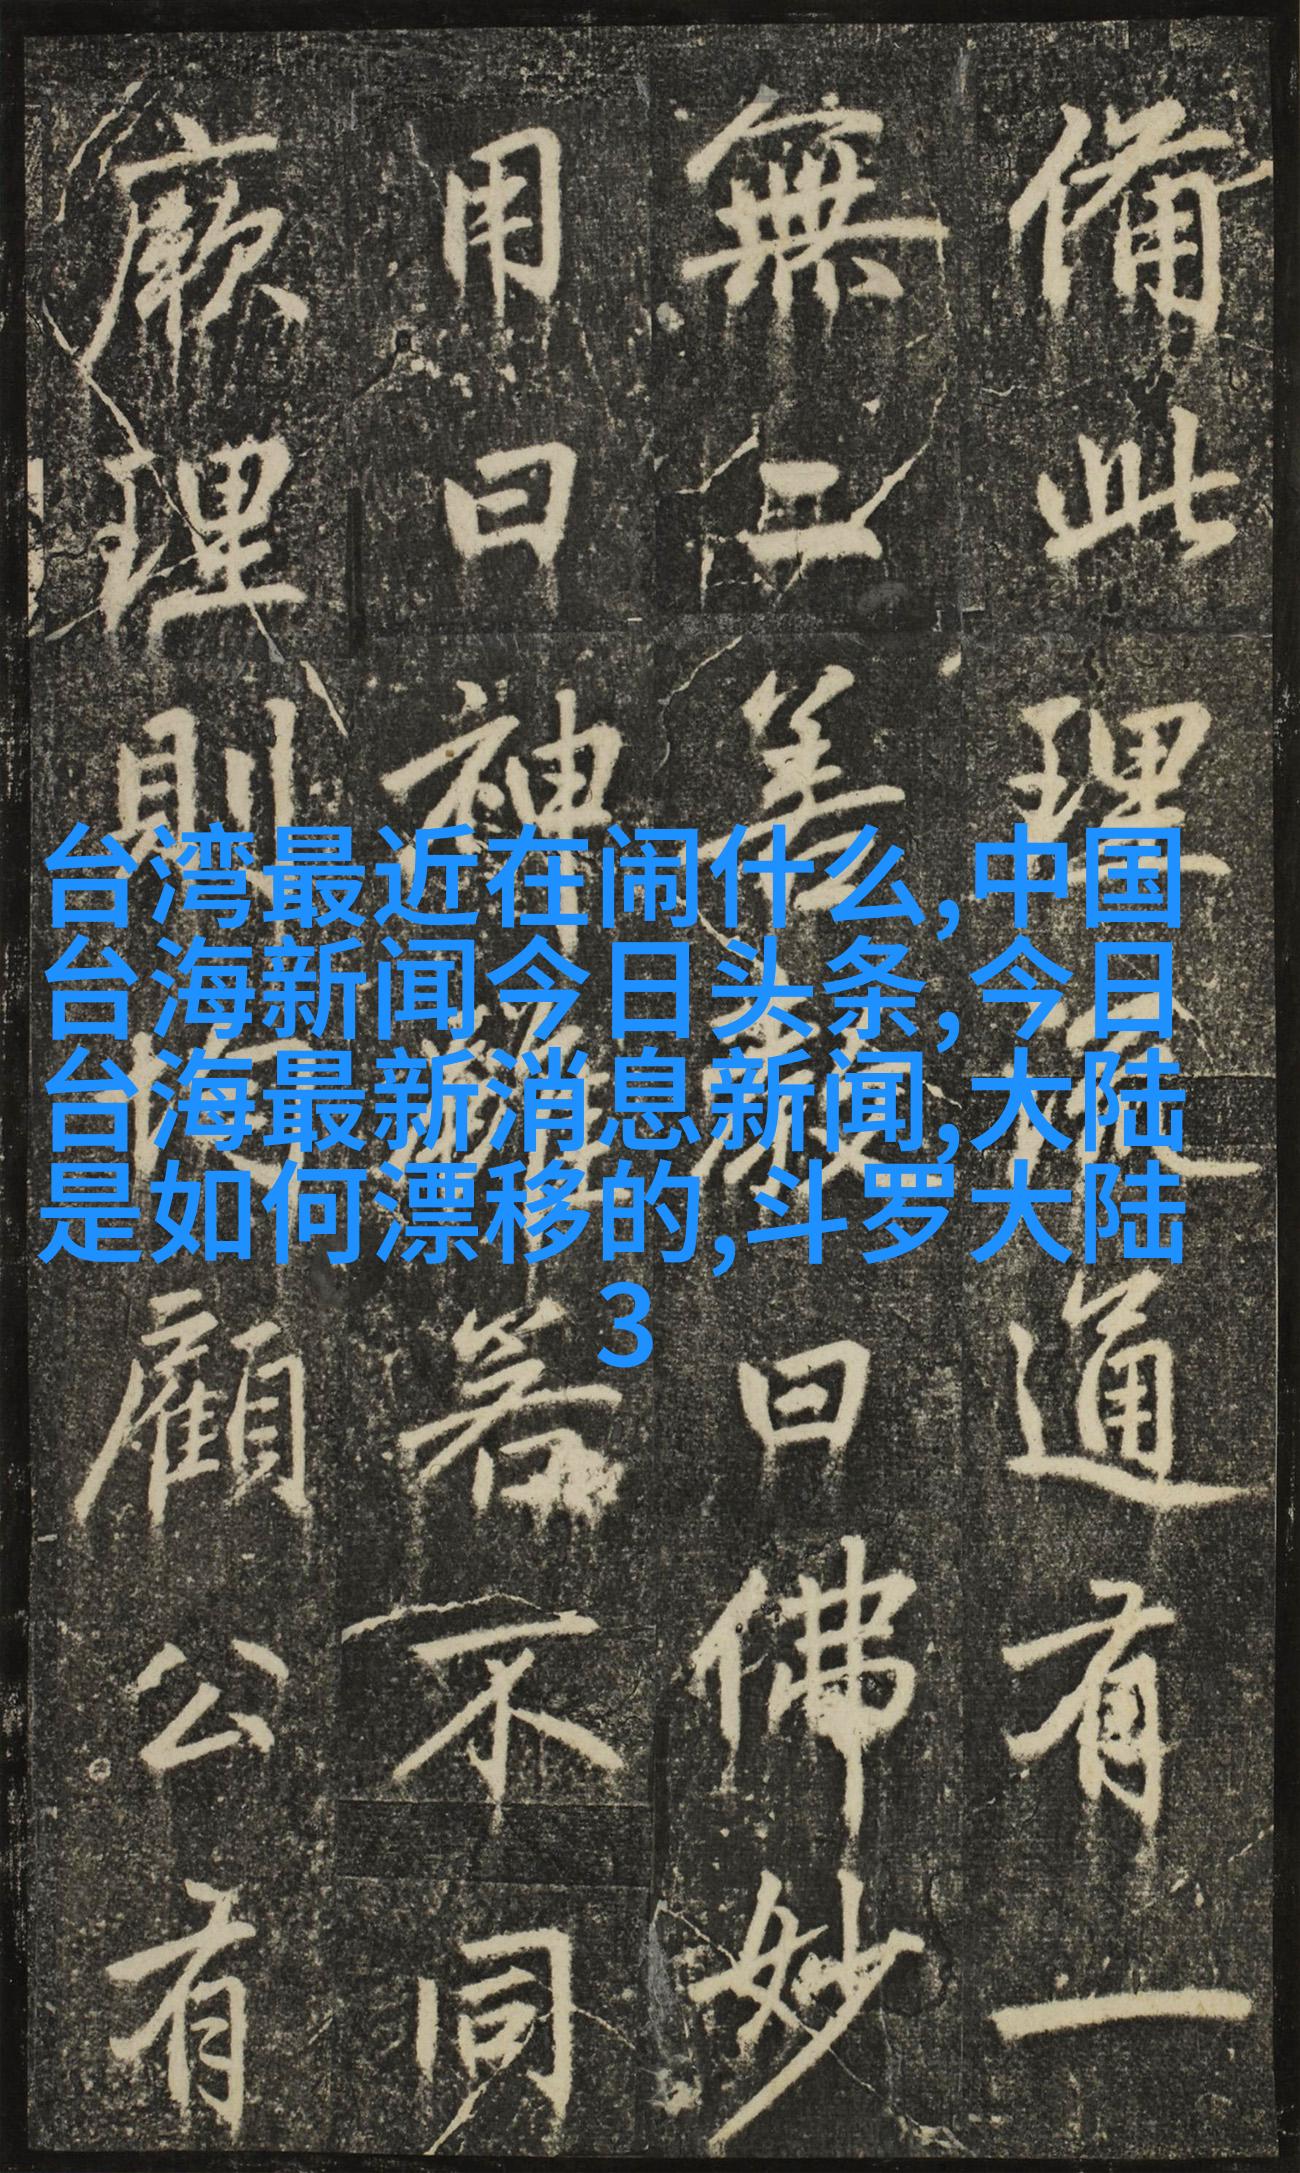 備此理通有一
無二善曰佛妙
用曰神若不同
厥理則顧公有
台湾最近在闹什么,中国
台海新闻今日头条, 今日
台海最新消息新闻,大陆
是如何漂移的,斗罗大陆
3